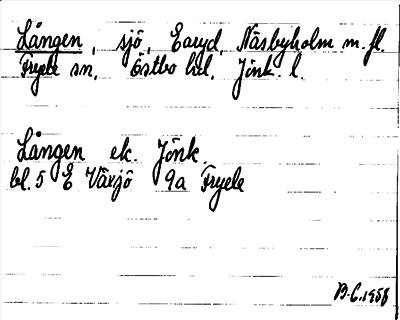 Lången, sjö, Earyd, Näsbyholm m.fl.
Fryele sn, Östbo hd. Jönk. l.
Lången ek. Jönk.
bl. 5 E Växjö 9a Fryele
B.C. 1958